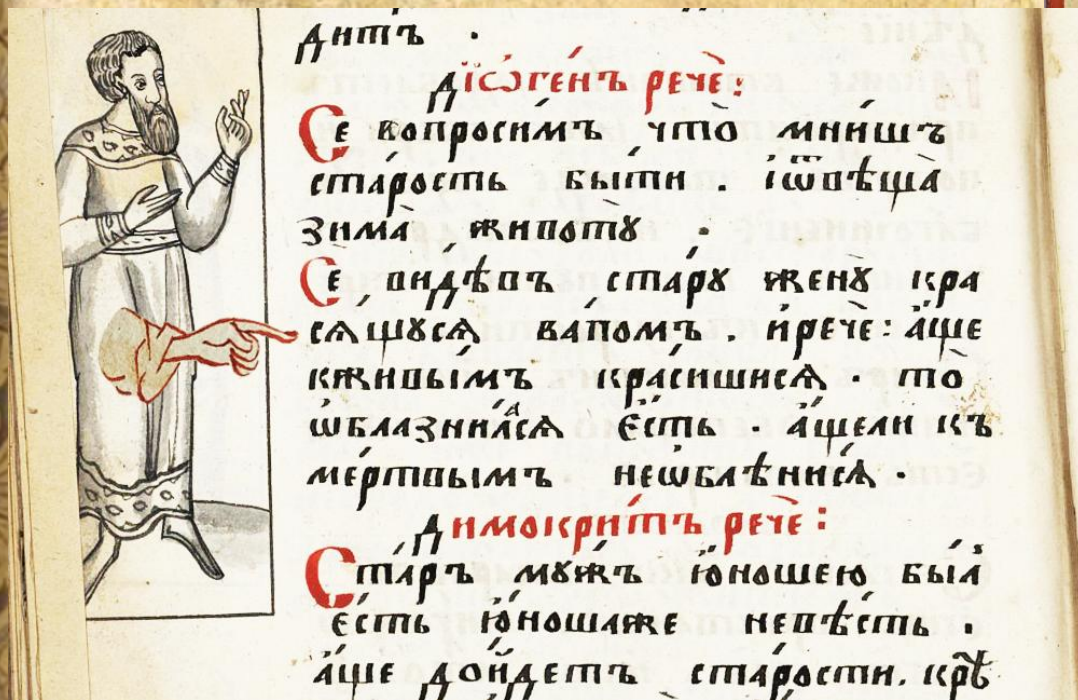 дитъ .
дїѡге́нъ речѐ:
Се вопроси́мъ что̀ мни́шъ
ста́рость бы́ти . і҆ѿвѣща̀
зима̀ животꙋ̀ .
Се ви́дѣвъ ста́рꙋ женꙋ̀ кра
ся́щꙋсѧ ва́помъ . и҆речѐ: а҆́ще
кживы́мъ кра́сишисѧ . то̀
ѡ҆блазни́ласѧ є҆́сть . а҆́щели къ
ме́ртвымъ неѡблѣни́сѧ .
димокри́тъ речѐ:
Ста́ръ мꙋ́жъ ю҆́ношею бы́лъ
є҆́сть ю҆́ношаже невѣ́сть .
а҆́ще до́йдетъ ста́рости.